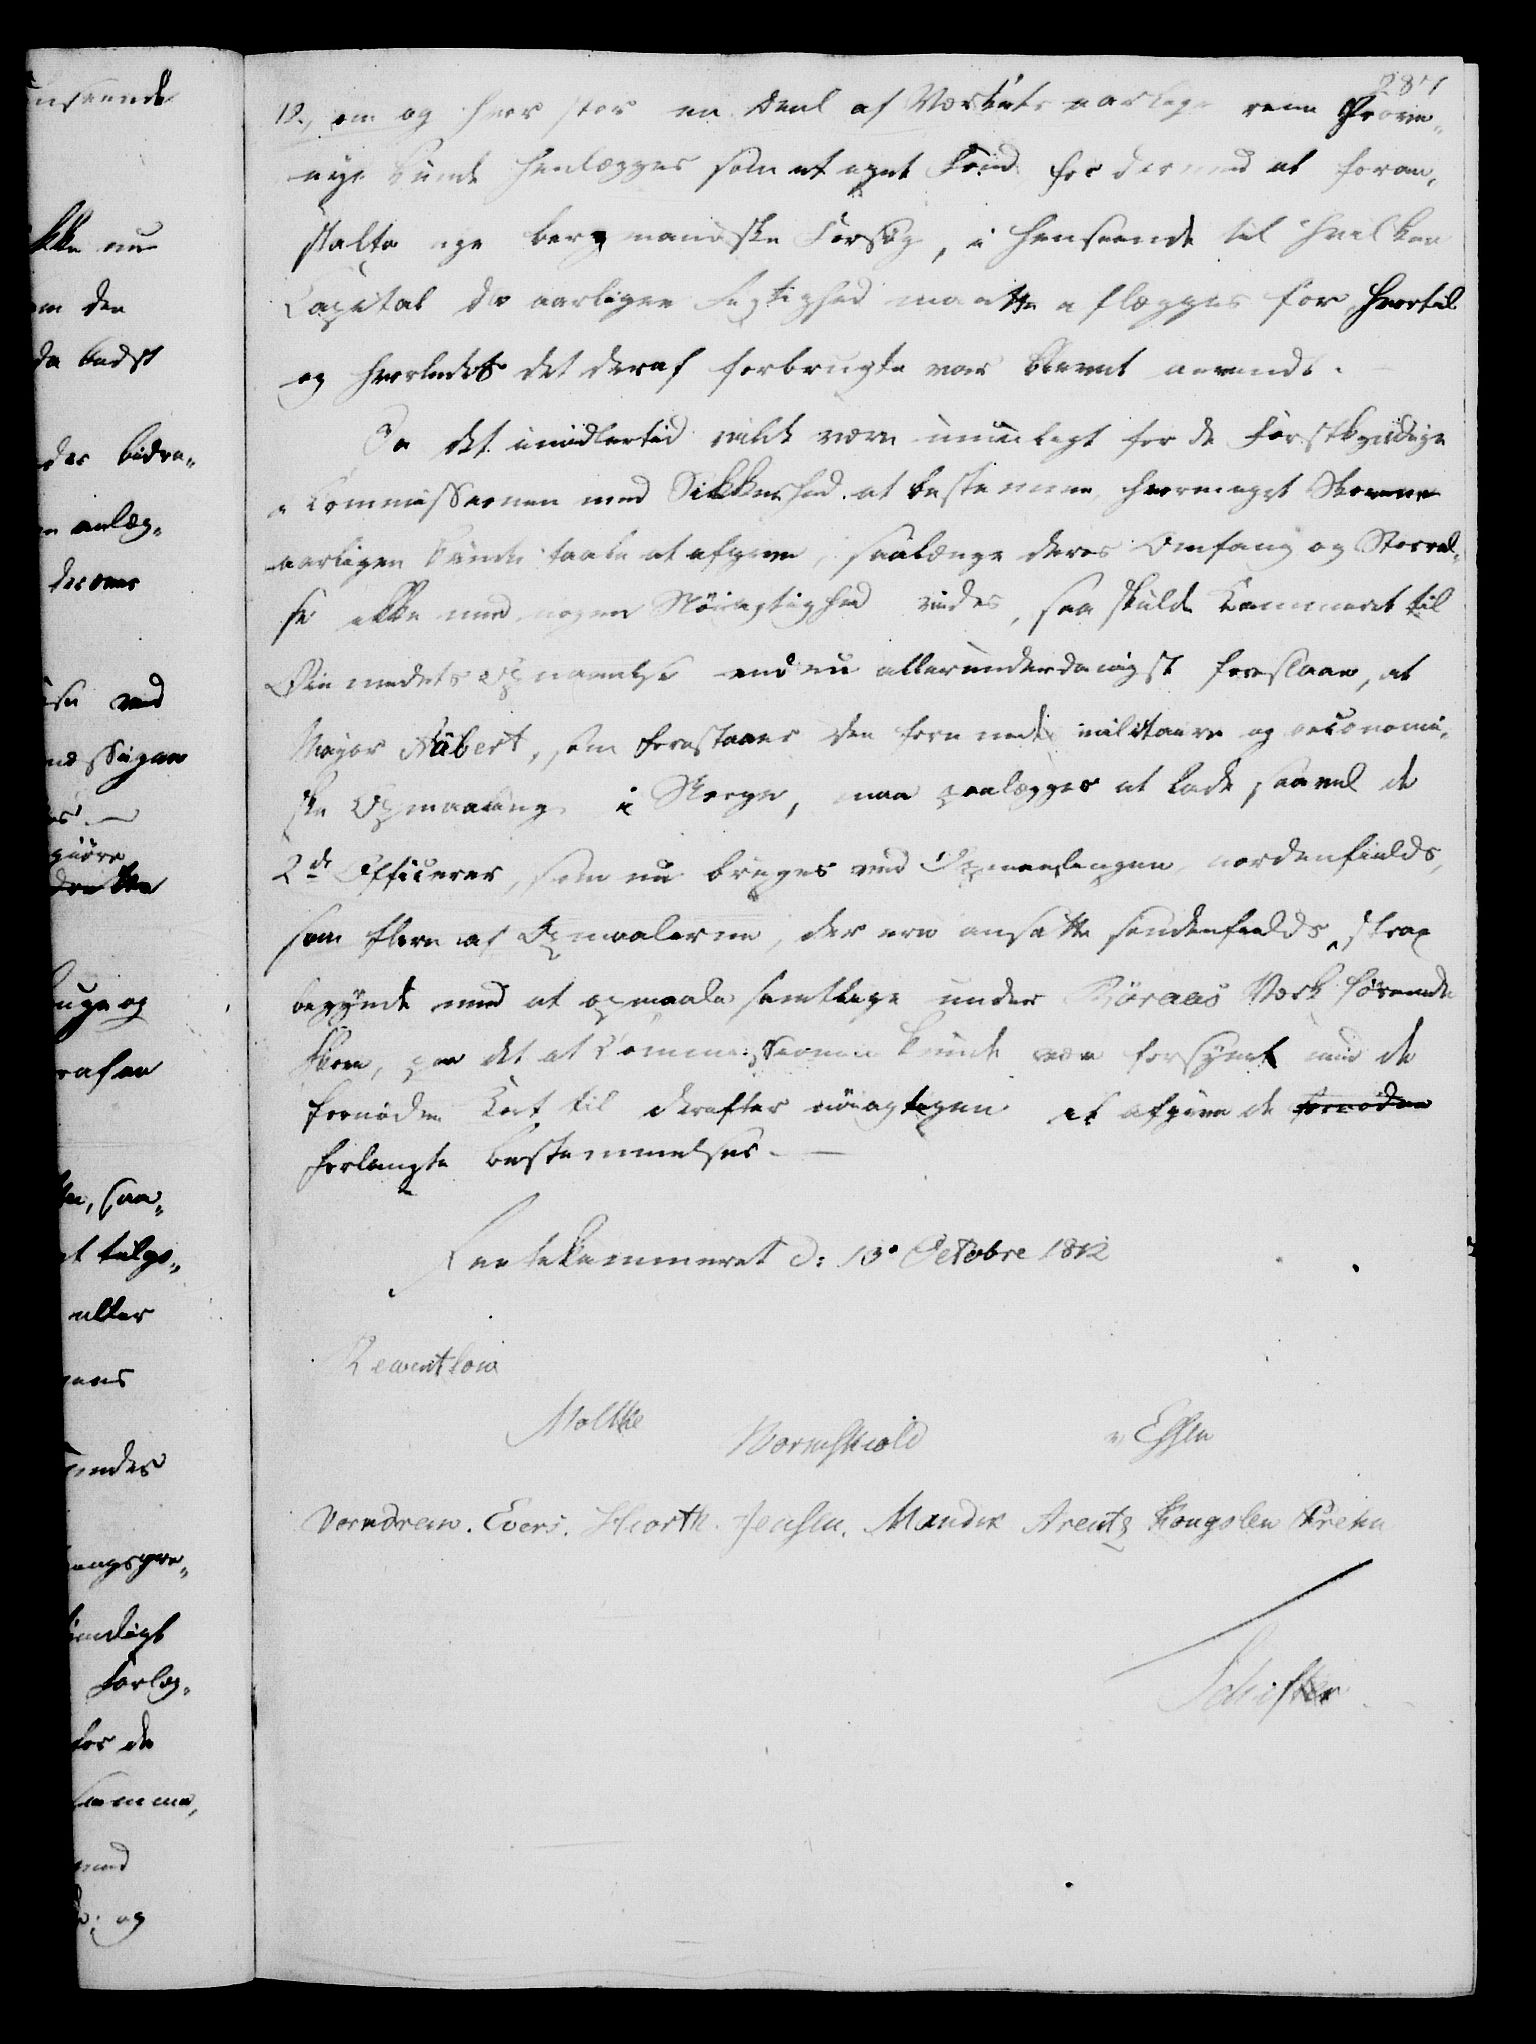 287
12, om og hvor stor en Deel af Værkets aarlige rene Prove-
nye kunde henlægges som et eget Fond for dermed at foran-
stalte nye bergmandske Forsøg, i Henseende til hvilken
Capital da aarligen Rigtighed maatte aflægges for, hvortil
og hvorledes det deraf forbrugte var blevet anvendt. —
Da det imidlertid vilde være umueligt for de Forstkyndige
i Commissionen med Sikkerhed at bestemme, hvormeget Skovene
aarligen kunde taale at afgive, saalænge deres Omfang og Størrel-
se ikke med nogen Nøiagtighed vides, saa skulde Kammeret til
Øiemedets Opnaaelse endnu allerunderdanigst foreslaae, at
Major Aubert, som forestaaer den forenede militaire og oeconomi-
ske Opmaaling i Norge, maa paalægges at lade saavel de
2de Officerer, som nu bruges ved Opmaalingen nordenfields,
som flere af Opmaalerne, der ere ansatte søndenfields, strax
begynde med at opmaale samtlige under Röraas Værk hørende
Skove, paa det at Commissionen kunde være forsynet med de
fornødne Kort til derefter nøiagtigen at afgive de fornødne
forlangte Bestemmelser. —
Rentekammeret d: 13. Octobre 1812
Reventlow
Moltke Wormskiold v Essen
Verndrew. Evers. Hiorth. Jensen. Mandix Arentz Kongslew Prehn
Schifter